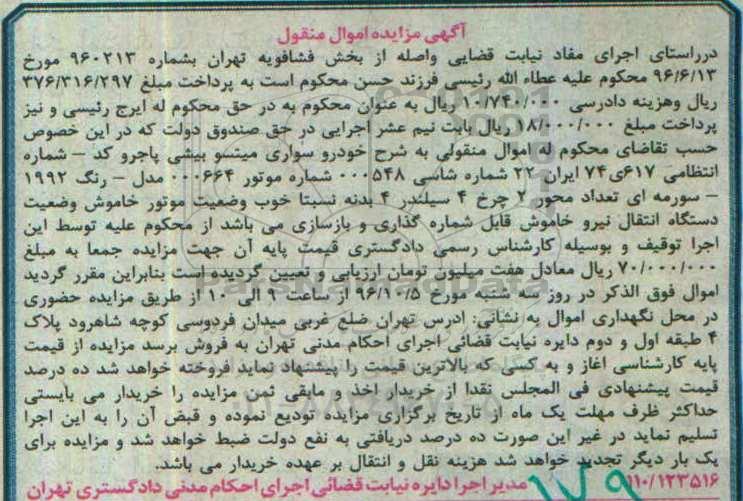 آگهی مزایده اموال منقول
درراستای اجرای مفاد نیابت قضایی واصله از بخش فشافویه تهران بشماره ۹۶۰۲۱۳ مورخ
۹۶/۶/۱۳ محکوم علیه عطاء الله رئیسی فرزند حسن محکوم است به پرداخت مبلغ ۳۷۶/۳۱۶/۲۹۷
ریال وهزینه دادرسی ۱۰/۷۴۰/۰۰۰ ریال به عنوان محکوم به در حق محکوم له ایرج رئیسی و نیز
پرداخت مبلغ ۱۸/۰۰۰/۰۰۰ ریال بابت نیم عشر اجرایی در حق صندوق دولت که در این خصوص
حسب تقاضای محکوم له اموال منقولی به شرح خودرو سواری میتسو بیشی پاجرو کد – شماره
انتظامی ۶۱۷ی۷۴ ایران ۲۲ شماره شاسی ۰۰۰۵۴۸ شماره موتور ۰۰۰۶۶۴ مدل – رنگ ۱۹۹۲
– سورمه ای تعداد محور ۲ چرخ ۴ سیلندر ۴ بدنه نسبتا خوب وضعیت موتور خاموش وضعیت
دستگاه انتقال نیرو خاموش قابل شماره گذاری و بازسازی می باشد از محکوم علیه توسط این
اجرا توقیف و بوسیله کارشناس رسمی دادگستری قیمت پایه آن جهت مزایده جمعا به مبلغ
۷۰/۰۰۰/۰۰۰ ریال معادل هفت میلیون تومان ارزیابی و تعیین گردیده است بنابراین مقرر گردید
اموال فوق الذکر در روز سه شنبه مورخ ۹۶/۱۰/۵ از ساعت ۹ الی ۱۰ از طریق مزایده حضوری
در محل نگهداری اموال به نشانی: ادرس تهران ضلع غربی میدان فردوسی کوچه شاهرود پلاک
۴ طبقه اول و دوم دایره نیابت قضائی اجرای احکام مدنی تهران به فروش برسد مزایده از قیمت
پایه کارشناسی اغاز و به کسی که بالاترین قیمت را پیشنهاد نماید فروخته خواهد شد ده درصد
قیمت پیشنهادی فی المجلس نقدا از خریدار اخذ و مابقی ثمن مزایده را خریدار می بایستی
حداکثر ظرف مهلت یک ماه از تاریخ برگزاری مزایده تودیع نموده و قبض آن را به این اجرا
تسلیم نماید در غیر این صورت ده درصد دریافتی به نفع دولت ضبط خواهد شد و مزایده برای
یک بار دیگر تجدید خواهد شد هزینه نقل و انتقال بر عهده خریدار می باشد.
۱۱۰/۱۲۳۵۱۶ مدیر اجرا دایره نیابت قضائی اجرای احکام مدنی دادگستری تهران
۱۷۹
ParsNamadData